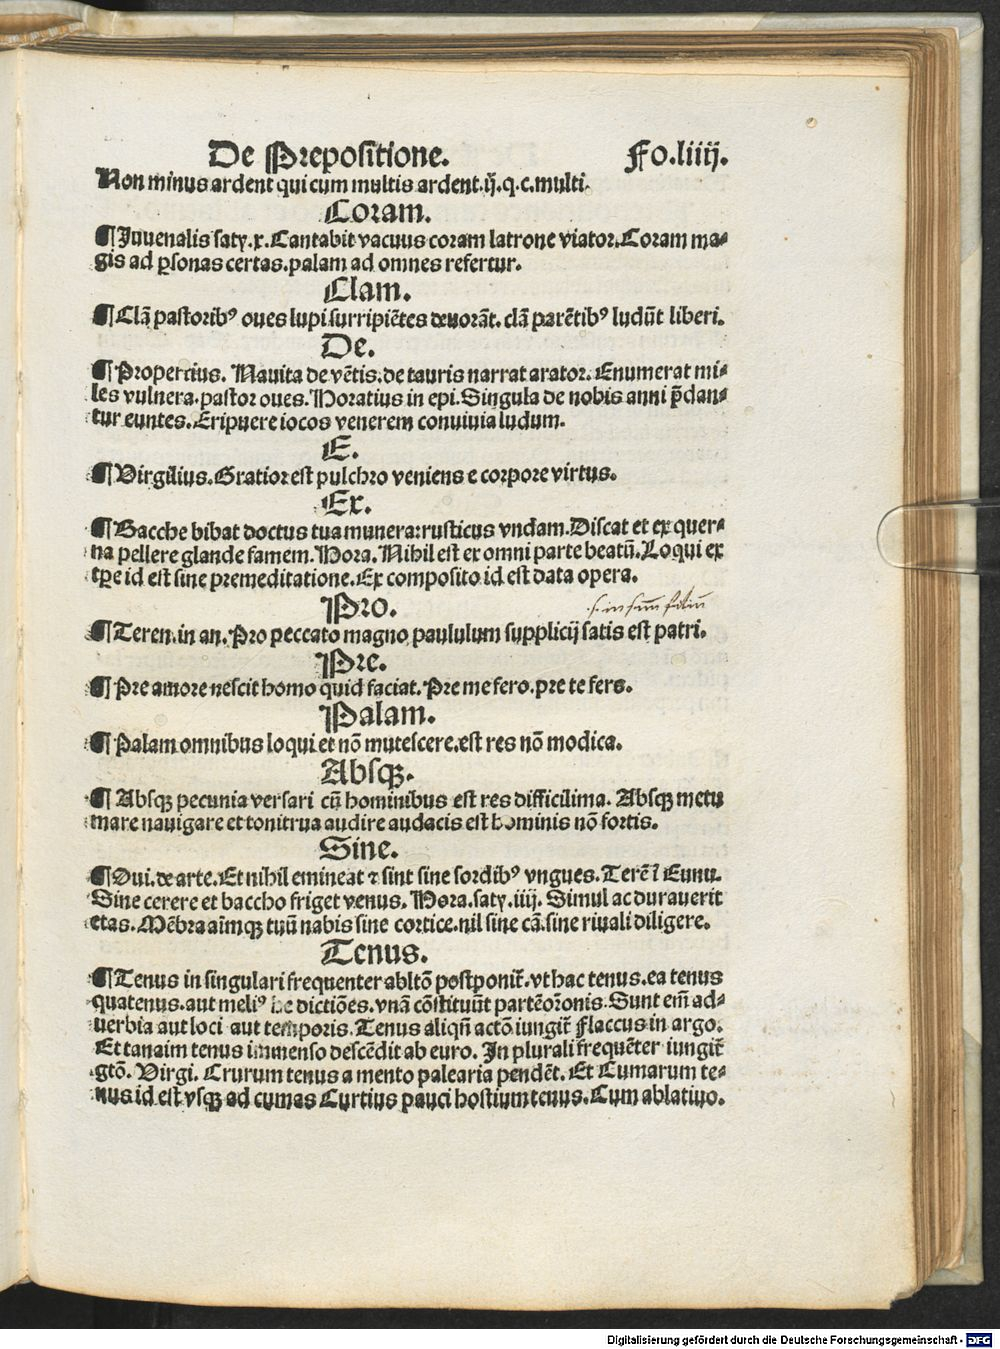 De Prepositione. Fo.liiij.
Non minus ardent qui cum multis ardent.ij.q.c.multi.
Coram.
¶ Juuenalis saty.x. Cantabit vacuus coram latrone viator. Coram ma⸗
gis ad ꝑsonas certas. palam ad omnes refertur.
Clam.
¶ Clã pastoribꝰ oues lupi surripiẽtes deuorãt. clã parẽtibꝰ ludũt liberi.
De.
¶ Propercius. Nauita de vẽtis: de tauris narrat arator. Enumerat mi⸗
les vulnera. pastor oues. Horatius in epi. Singula de nobis anni p̃dan⸗
tur euntes. Eripuere iocos venerem conuiuia ludum.
E.
¶ Virgilius. Gratior est pulchro veniens e corpore virtus.
Ex.
¶ Bacche bibat doctus tua munera: rusticus vndam. Discat et ex quer⸗
na pellere glande famem. Hora. Nihil est ex omni parte beatũ. Loqui ex
tꝑe id est sine premeditatione. Ex composito id est data opera.
Pro.
s. in suũ filiũ
¶ Teren. in an. Pro peccato magno paululum supplicij satis est patri.
Pre.
¶ Pre amore nescit homo quid faciat. Pre me fero. pre te fers.
Palam.
¶ Palam omnibus loqui et nõ mutescere. est res nõ modica.
Absqꝫ.
¶ Absqꝫ pecunia versari cũ hominibus est res difficilima. Absqꝫ metu
mare nauigare et tonitrua audire audacis est hominis nõ fortis.
Sine.
¶ Oui. de arte. Et nihil emineat ⁊ sint sine sordibꝰ vngues. Terẽ ĩ Eunu.
Sine cerere et baccho friget venus. Hora. saty. iiij. Simul ac durauerit
etas. Mẽbra aĩmqꝫ tuũ nabis sine cortice. nil sine cã. sine riuali diligere.
Tenus.
¶ Tenus in singulari frequenter abltõ postponit̃. vt hac tenus. ea tenus
quatenus. aut meliꝰ he dictiões. vnã cõstituũt partẽ orõnis. Sunt em̃ ad⸗
uerbia aut loci aut temporis. Tenus aliqñ actõ iungit̃ Flaccus in argo.
Et tanaim tenus immenso descẽdit ab euro. In plurali frequẽter iungit̃
gtõ. Virgi. Crurum tenus a mento palearia pendẽt. Et Cumarum te⸗
nus id est vsqꝫ ad cumas Curtius pauci hostium tenus. Cum ablatiuo.
Digitalisierung gefördert durch die Deutsche Forschungsgemeinschaft - DFG